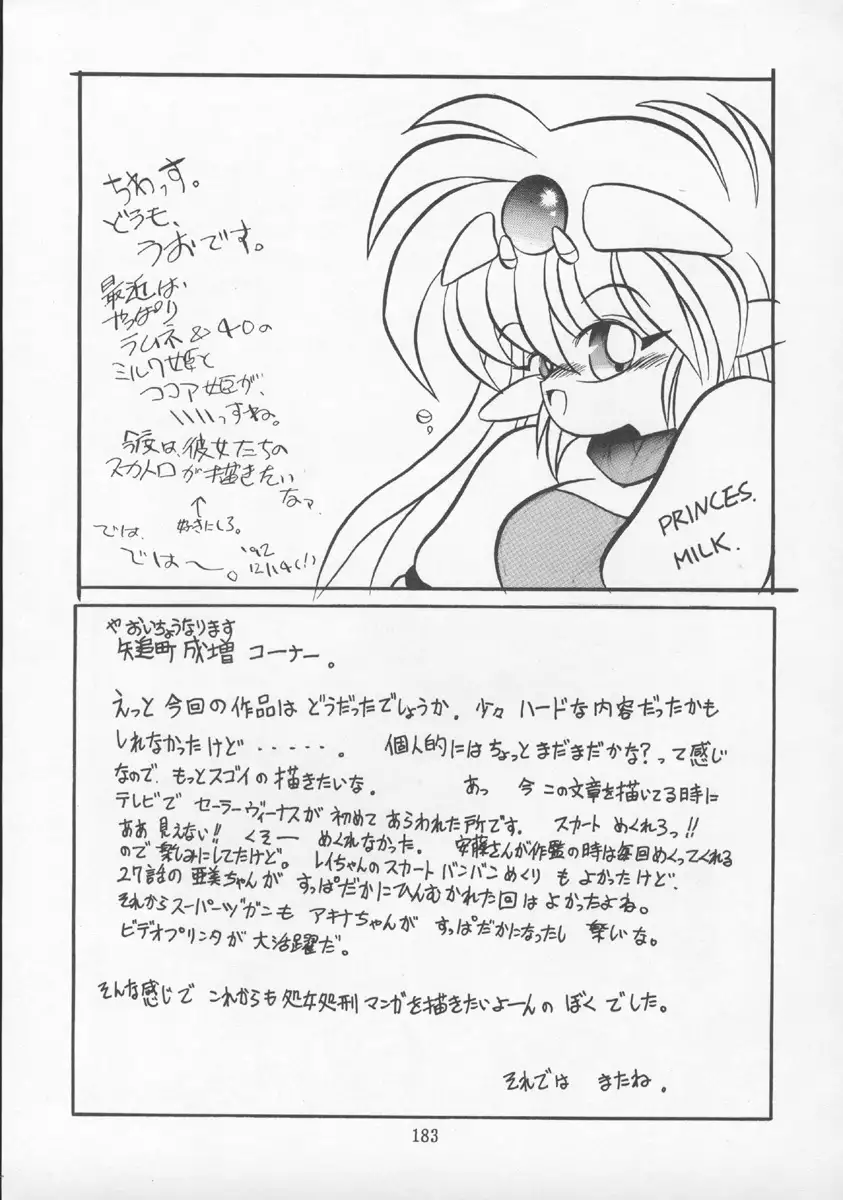 ちわっす。
どうも、
うおです。
最近は、
やっぱり
ラムネ&40の
ミルク姫と
ココア姫が、
いいっすね。
今度は、彼女たちの
スカトロが描きたい
なァ
↑
好きにしろ。
では、
では〜。
'92
12/14(!)
PRINCES.
MILK.
やおいちょうなります
矢追町成増 コーナー。
えっと 今回の作品は どうだったでしょうか。少々 ハードな内容だったかも
しれなかったけど・・・・・。 個人的にはちょっとまだまだかな?って感じ
なので、もっとスゴイの描きたいな。 あっ 今 この文章を描いてる時に
テレビで セーラーヴィーナスが 初めて あらわれた所です。 スカート めくれろっ!!
ああ見えない!! くそー めくれなかった。 安藤さんが作監の時は毎回めくってくれる
ので楽しみにしてたけど。 レイちゃんのスカート バンバンめくり も よかったけど、
27話の 亜美ちゃんが すっぱだかにひんむかれた回はよかったよね。
それからスーパーヅガンも アキナちゃんが すっぱだかになったし 楽しいな。
ビデオプリンタが 大活躍だ。
そんな感じで これからも 処女処刑 マンガを描きたいよーんの ぼく でした。
それでは またね。
183